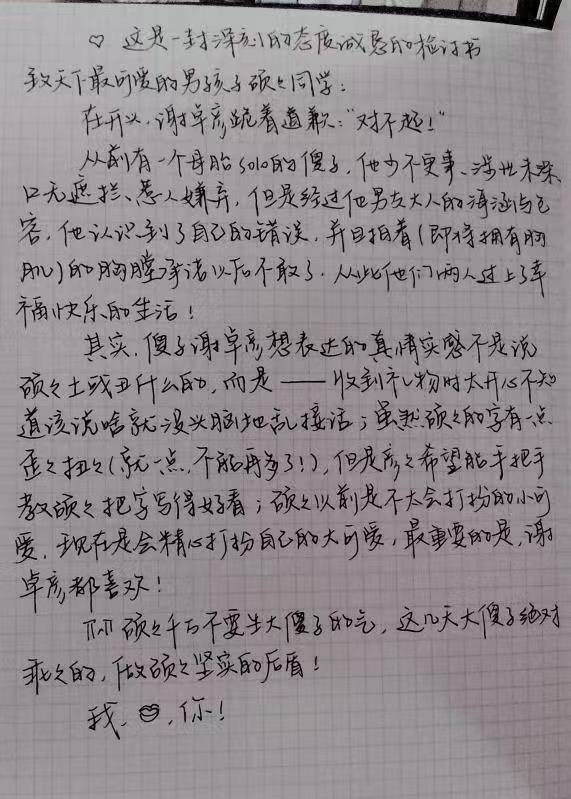 ♡ 这是一封深刻的态度诚恳的检讨书
致天下最可爱的男孩子硕々同学：
在开头，谢卓彦跪着道歉：“对不起！”
从前有一个母胎solo的傻子，他少不更事、涉世未深、
口无遮拦、惹人嫌弃，但是经过他男友大人的海涵与包
容，他认识到了自己的错误，并且拍着(即将拥有胸
肌)的胸膛承诺以后不敢了，从此他们两人过上了幸
福快乐的生活！
其实，傻子谢卓彦想表达的真情实感不是说
硕々土或丑什么的，而是——收到礼物时太开心不知
道该说啥就没头脑地乱接话；虽然硕々的字有一点
歪々扭々(就一点，不能再多了!)，但是彦々希望能手把手
教硕々把字写得好看；硕々以前是不太会打扮的小可
爱，现在是会精心打扮自己的大可爱，最重要的是，谢
卓彦都喜欢！
硕々千万不要生大傻子的气，这几天大傻子绝对
乖々的，做硕々坚实的后盾！
我、，你！